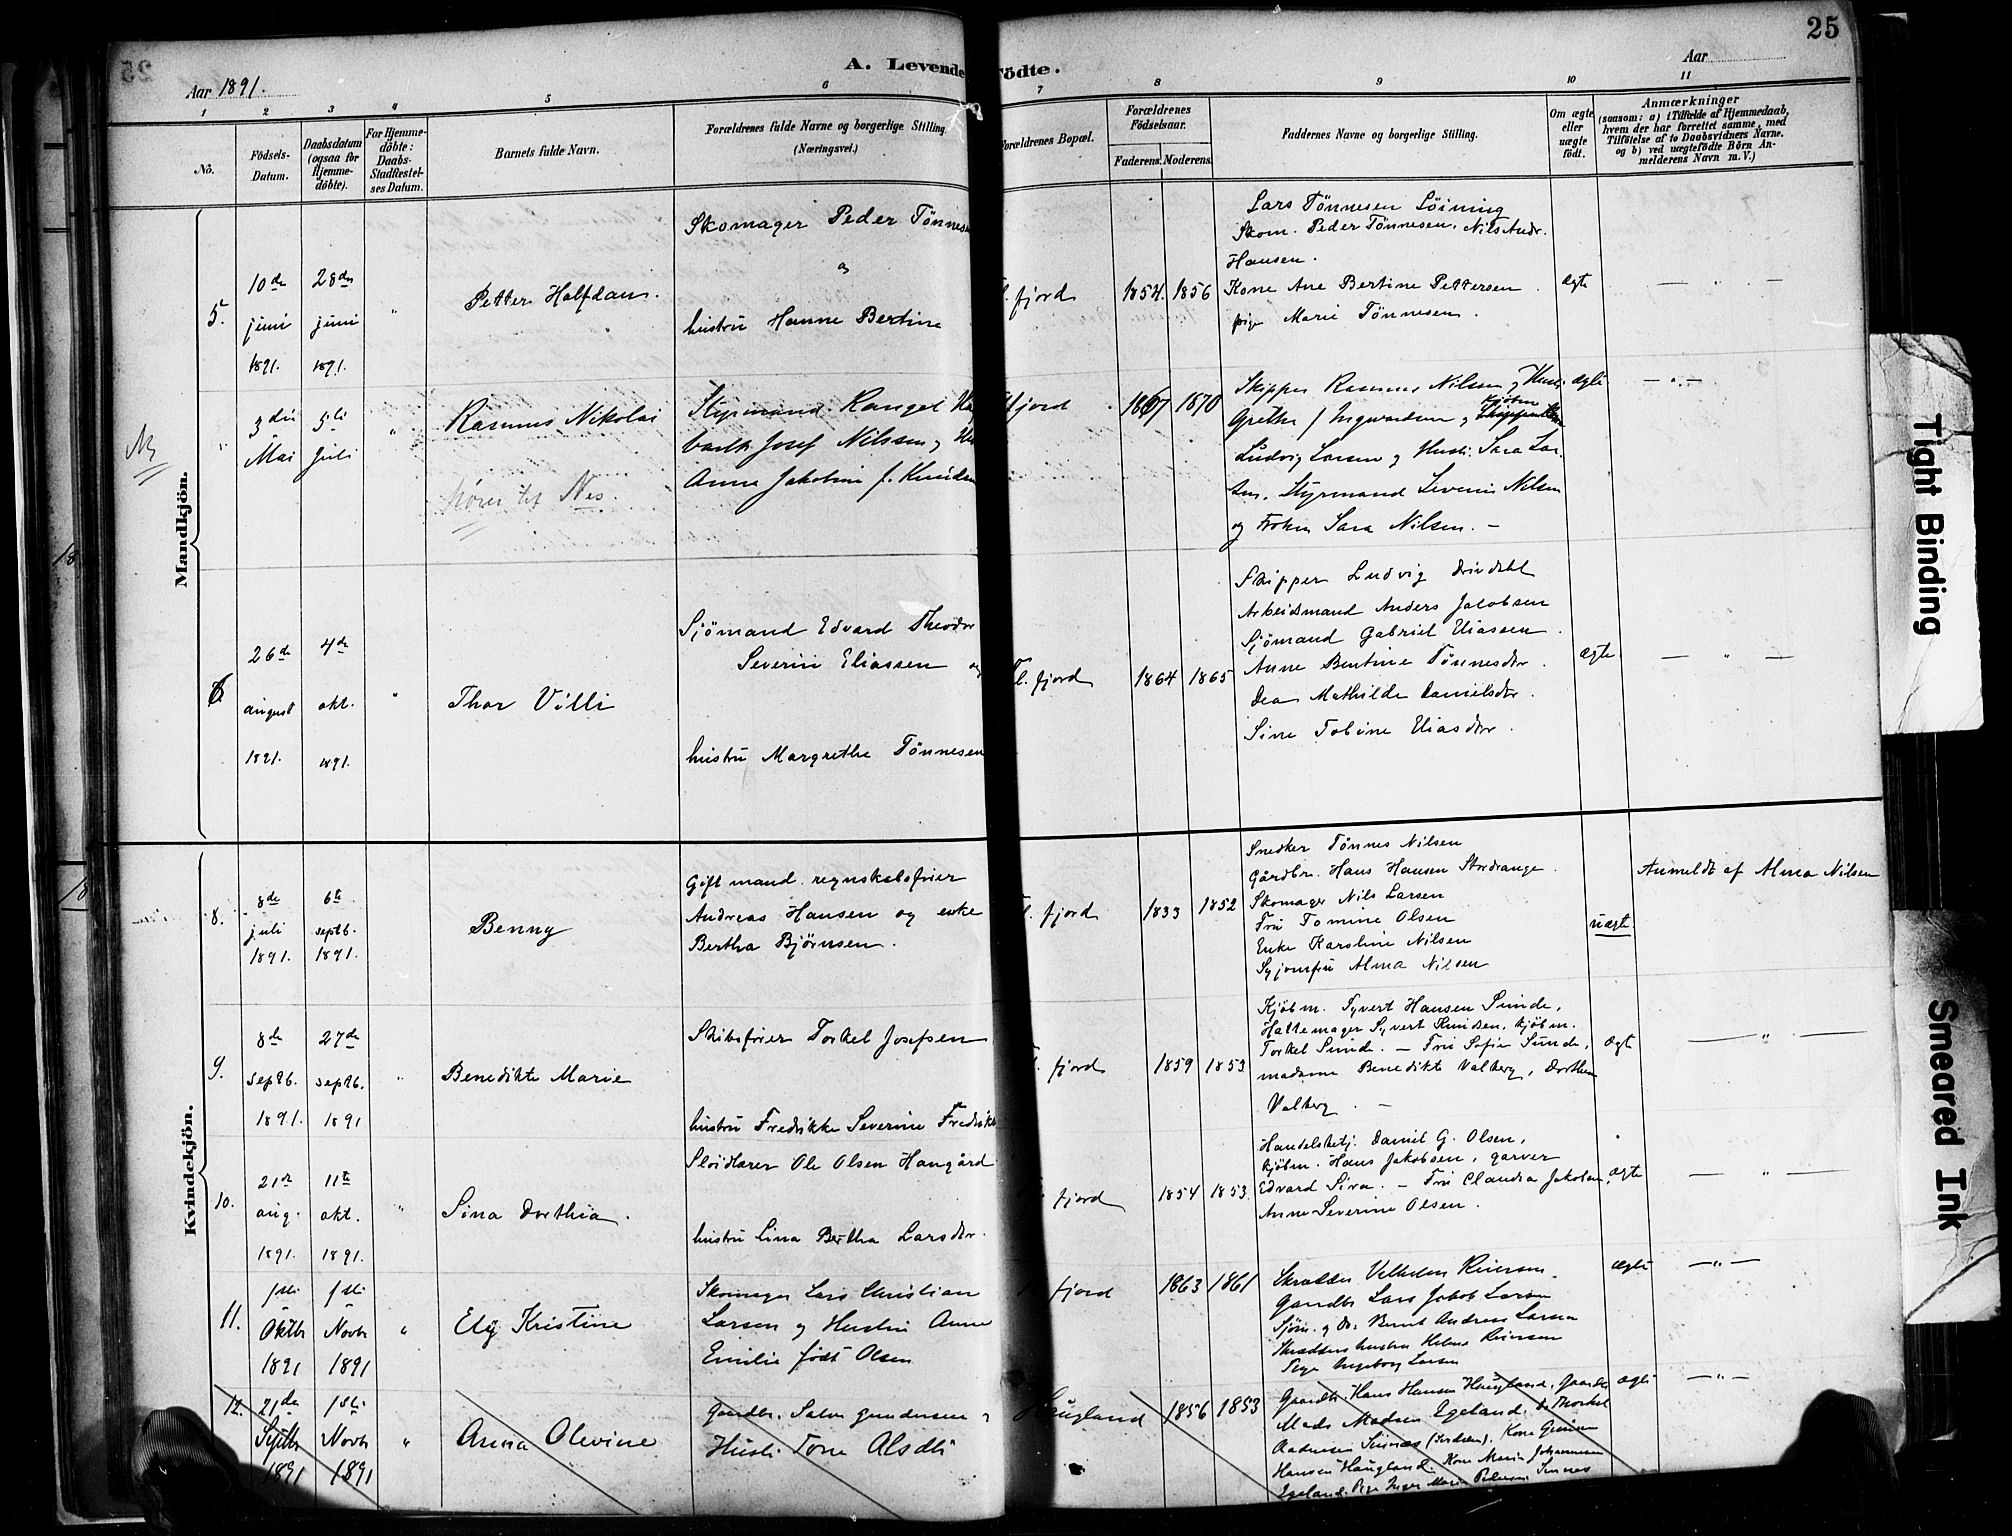 25
A. Levende Födte.
Aar 1891.
Aar
1 2 3 4 5 6 7 8 9 10 11
No.
Födsels-Datum.
Daabsdatum (ogsaa for Hjemmedöbte).
For Hjemmedöbte: Daabs-Stadfæstelses Datum.
Barnets fulde Navn.
Forældrenes fulde Navne og borgerlige Stilling.
(Næringsvei.)
Forældrenes Bopæl.
Forældrenes Födselsaar.
Faderens. Moderens.
Faddernes Navne og borgerlige Stilling.
Om ægte eller uægte födt.
Anmærkninger
(saasom: a) i Tilfælde af Hjemmedaab,
hvem der har forrettet samme, med
Tilföielse af to Daabsvidners Navne.
og b) ved uægtefödte Börn Anmelderens Navn m. V.)
Mandkjön.
5.
10de juni 1891.
28de juni 1891.
Petter Halfdan.
Skomager Peder Tönnesen
og
hustru Hanne Bertine
fjord
1854. 1856
Lars Tönnesen Löining
Skom. Peder Tönnesen, Nils Andr.
Hansen.
Kone Ane Bertine Pettersen
pige Marie Tönnesen.
ægte
3die Mai
5te Juli
Rasmus Nikolai
hörer til Nes.
Styrmand Rangel
Josef Nilssen og
Anna Jakobine f. Knudsen
fjord
1867 1870
Skipper Rasmus Nilsen og Hust.
Grethe f Ingvardsen og
Ludvig Larsen og Hust. Sara Lar
sen. Styrmand Severin Nilsen
og Frøken Sara Nilsen. –
ægte
6
26de august 1891.
4de okt. 1891.
Thor Villi
Sjömand Edvard Theodor
Severin Eliassen og
hustru Margrethe Tönnesen
Fl. fjord
1864 1865
Skipper Ludvig Drivdal
Arbeidsmand Anders Jacobsen
Sjömand Gabriel Eliassen
Anne Bentine Tönnesdtr.
Dea Mathilde Danielsdtr.
Sine Tobine Eliasdtr.
ægte
Kvindekjön.
8.
8de juli 1891.
6te septb. 1891.
Benny
Gift mand. regnskabsförer
Andreas Hansen og enke
Bertha Björnsen.
Fl. fjord
1833 1852
Snedker Tönnes Nilsen
Gårdbr. Hans Hansen Stordrange
Skomager Nils Larsen
Fru Tomine Olsen
Enke Karoline Nilsen
Syjomfru Alma Nilsen
uægte
Anmeldt af Alma Nilsen
9.
8de septb. 1891.
27de septb. 1891
Benedikte Marie
Skibsförer Torkel Josefsen
hustru Fredrikke Severine Fredriks
fjord
1859 1853
Kjöbm. Syvert Hansen Sunde,
Hattemager Syvert Knudsen, kjöbm.
Torkel Sunde. – Fru Sofie Sunde,
madame Benedikte Valberg, Dorthea
Valberg. –
ægte
10.
21de aug. 1891.
11te okt. 1891.
Sina Dorthia.
Slöidlærer Ole Olsen Haugård
hustru Lina Bertha Larsdtr.
fjord
1854 1853
Handelsbetj. Daniel G. Olsen,
kjöbm. Hans Jakobsen, garver
Edvard Sira. – Fru Claudia Jakobsen,
Anne Severine Olsen.
ægte
11.
1ste Oktbr 1891
1ste Novbr 1891
Elij Kristine
Skomager Lars Christian
Larsen og Hustru Anne
Emilie födt Olsen
fjord
1863 1861
Skrædder Vilhelm Reiersen
Gaardbr Lars Jakob Larsen
Sjöm. og Do. Bernt Andreas Larsen
Skrædderhustru Helene Reiersen
Pige Ingeborg Larsen
ægte
12.
21de Septbr 1891
1ste Novbr 1891
Anna Olevine
Gaardbr. Salve Gundersen og
Hustr. Tone Alsdtr
Haugland
1856 1853
Gaardbr. Hans Hansen Haugland, Gaardbr
Mads Madsen Egeland, Do Thorkel
Hansen Haugland. Kone Maria Johannesen
Egeland. Pige Inger Marie Pedersen Sinnes
ægte
Tight Binding
Smeared Ink